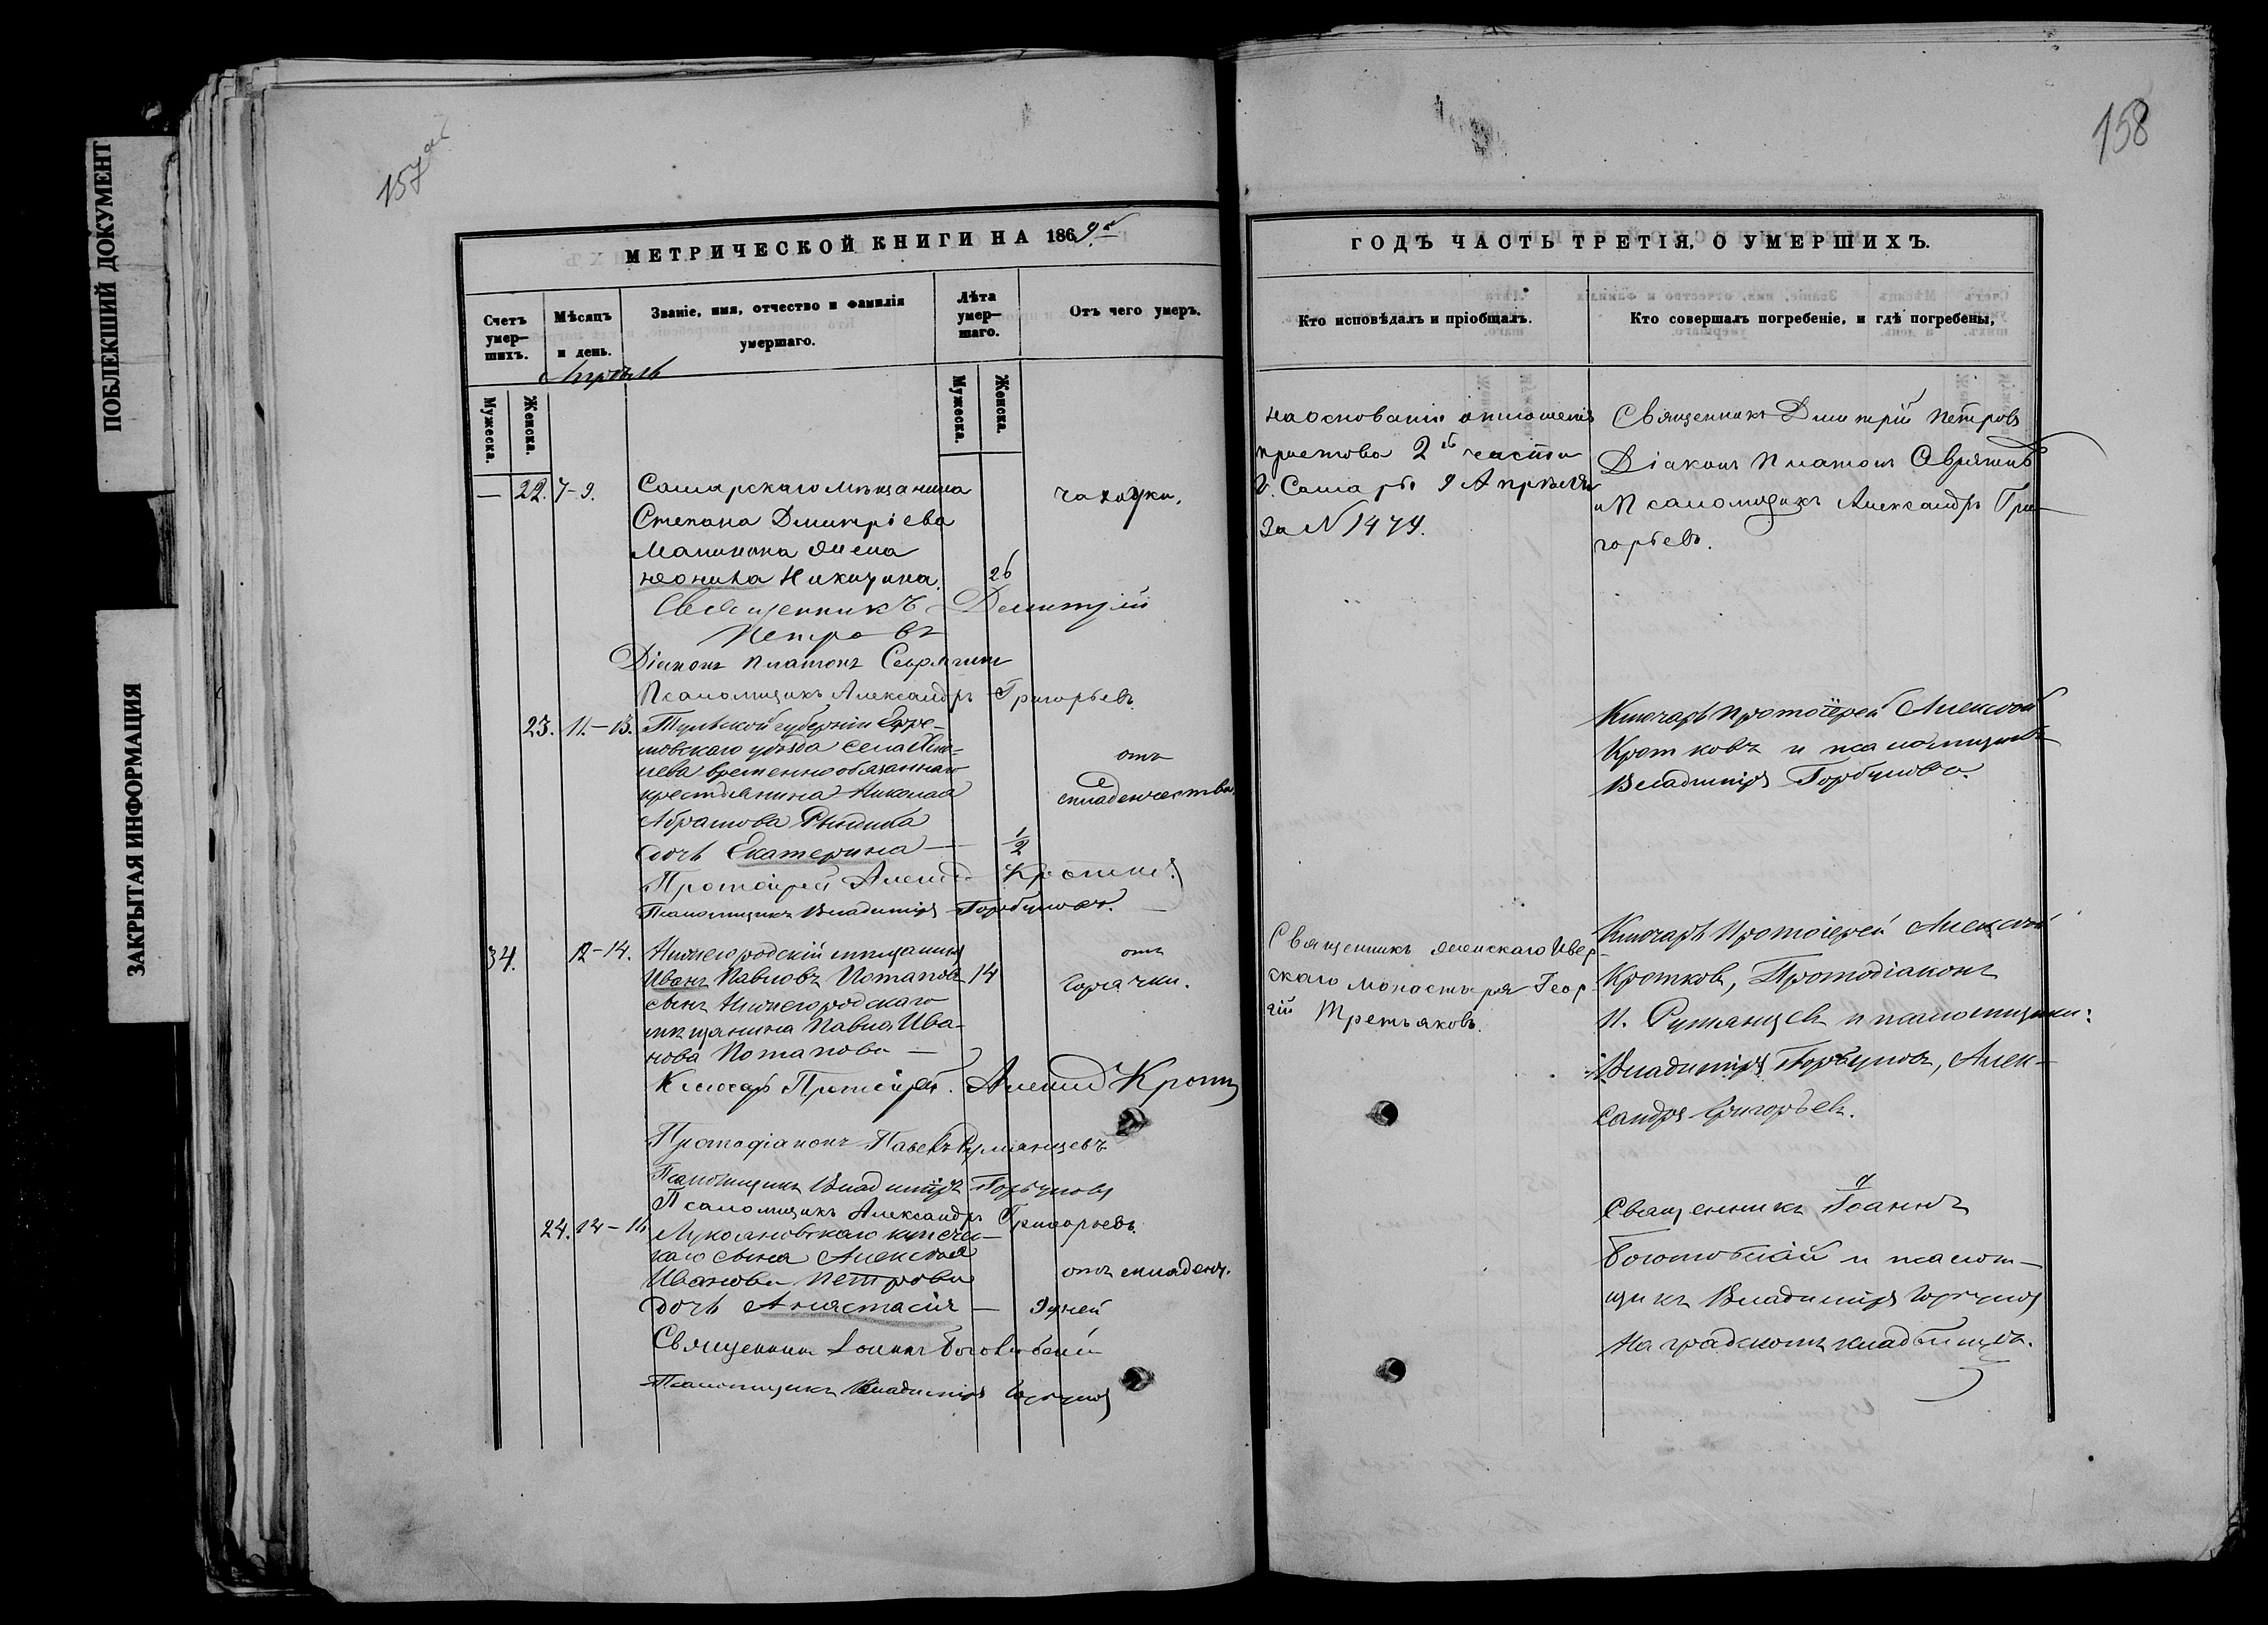 ПОБЛЕКШИЙ ДОКУМЕНТ
ЗАКРЫТАЯ ИНФОРМАЦИЯ
157об
МЕТРИЧЕСКОЙ КНИГИ НА 1869й
Счетъ умер-шихъ.
Мѣсяцъ и день.
Званіе, имя, отчество и фамилія умершаго.
Лѣта умер-шаго.
Отъ чего умеръ.
Апрѣль
Мужеска.
Женска.
Мужеска.
Женска.
— 22. 7-9. Самарскаго мѣщанина чахотки.
Степана Дмитріева
жена
Неонила Никитина 26
Священникъ Димитрій
Петровъ
Діаконъ Платонъ
Псаломщикъ Александръ Григорьевъ.
23. 11-13. Тульской губерніи Ефре-
мовскаго уѣзда села
временно обязаннаго отъ
крестьянина Николая младенчества.
Абрамова
дочь Екатерина — 1/2
Протоіерей
Псаломщикъ Владиміръ Горбуновъ.
34. 12-14. Нижегородскій мѣщанинъ отъ
Иванъ Павловъ Потаповъ 14 горячки.
сынъ Нижегородскаго
мѣщанина Павла Ива-
нова Потапова —
Ключарь Протоіерей.
Протодіаконъ Павелъ Румянцевъ
Псаломщикъ Владиміръ Горбуновъ
Псаломщикъ Александръ Григорьевъ.
24. Лукояновскаго купече-
каго сына Алексѣя
Иванова Петрова отъ младенч.
дочь Анастасія — 9 дней
Священникъ Іоаннъ
Псаломщикъ Владиміръ Горбуновъ
158
ГОДЪ ЧАСТЬ ТРЕТІЯ, О УМЕРШИХЪ.
Кто исповѣдалъ и пріобщалъ.
Кто совершалъ погребеніе, и гдѣ погребены,
На основаніи отношенія
пристава 2й части
г. Самары 9 Апрѣля
за N 1474.
Священникъ Димитрій Петровъ
Діаконъ Платонъ
и Псаломщикъ Александръ Гри-
горьевъ.
Ключарь Протоіерей Алексѣй
Кротковъ и псаломщикъ
Владиміръ Горбуновъ.
Священникъ женскаго Ивер-
скаго монастыря Геор-
гій Третьяковъ.
Ключарь Протоіерей Алексѣй
Кротковъ, Протодіаконъ
П. Румянцевъ и псаломщики:
Владиміръ Горбуновъ, Алек-
сандръ Григорьевъ.
Священникъ Іоаннъ
и псалом-
щикъ Владиміръ Горбуновъ
На градскомъ кладбищѣ.